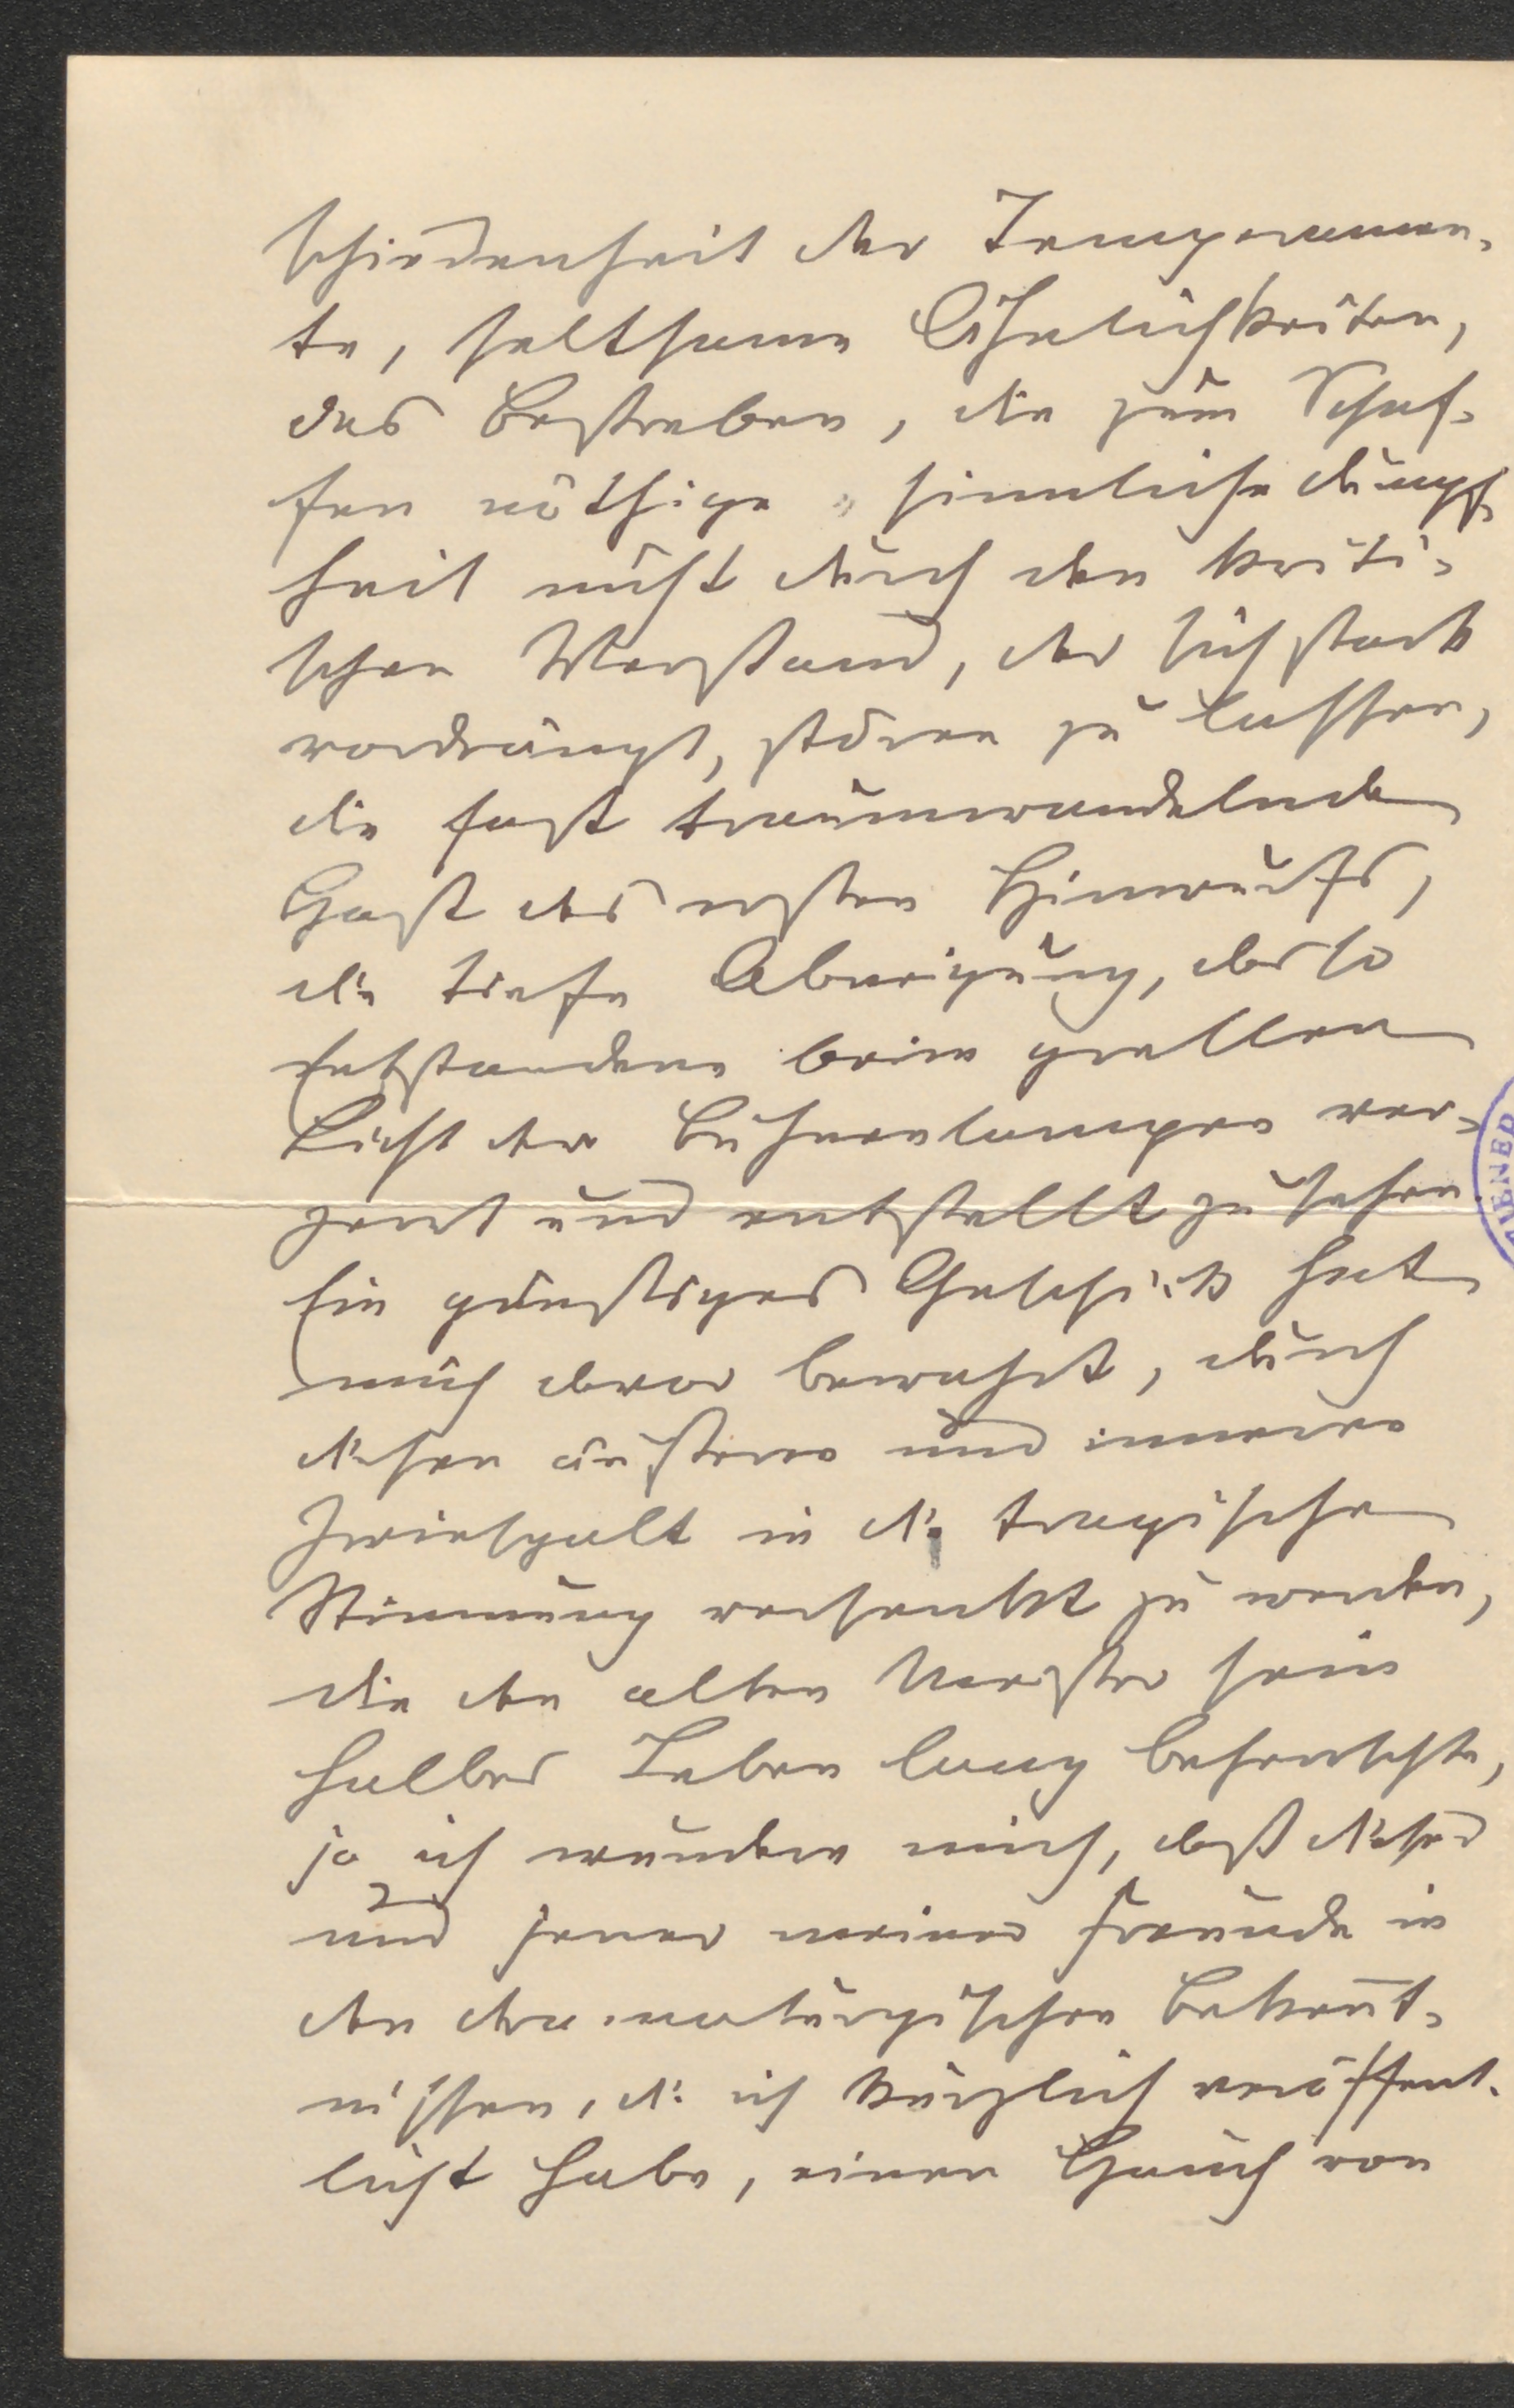 schiedenheit der Temperamen-
te, seltsame Ähnlichkeiten,
das Bestreben, die zum Schaf-
fen nöthige „sinnliche Dumpf-
heit nicht durch den kriti-
schen Verstand, der sich stark
vordrängt, stören zu lassen,
die fast traumwandelnde
Hast des ersten Hinwurfs,
die tiefe Abneigung, das so
Entstandene beim grellen
Licht der Bühnenlampen ver-
zerrt und entstellt zu sehen.
Ein günstiges Geschick hat
mich davor bewahrt, durch
diesen äußeren und inneren
Zwiespalt in die tragische
Stimmung versenkt zu werden,
die den alten Meister sein
halbes Leben lang beherrschte,
ja ich wundere mich, daß dieser
und jener meiner Freunde in
den dramaturgischen Bekennt-
nissen, die ich kürzlich veröffent-
licht habe, einen Hauch von